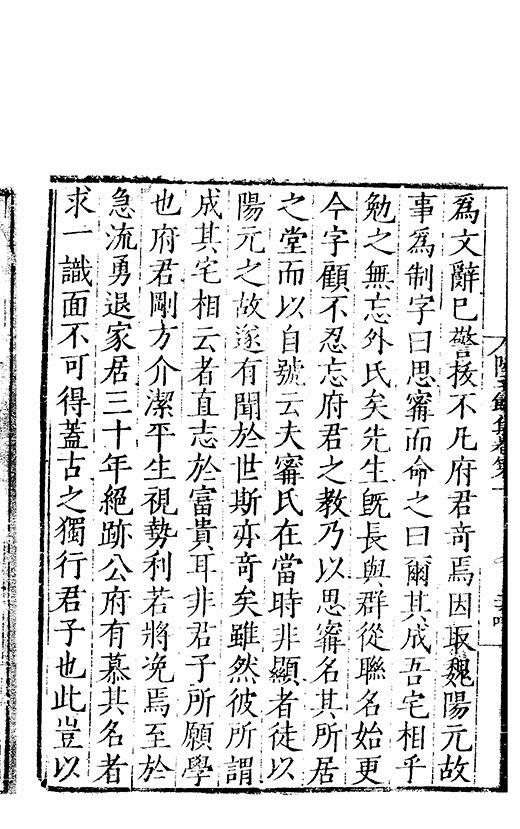 爲文辭已警拔不凡府君奇焉因取魏陽元故
事爲制字曰思寗而命之曰爾其成吾宅相乎
勉之無忘外氏矣先生旣長與群從聯名始更
今字顧不忍忘府君之教乃以思寗名其所居
之堂而以自號云夫寗氏在當時非顯者徒以
陽元之故遂有聞於世斯亦奇矣雖然彼所謂
成其宅相云者直志於富貴耳非君子所願學
也府君剛方介潔平生視勢利若將凂焉至於
急流勇退家居三十年絕跡公府有慕其名者
求一識面不可得蓋古之獨行君子也此豈以